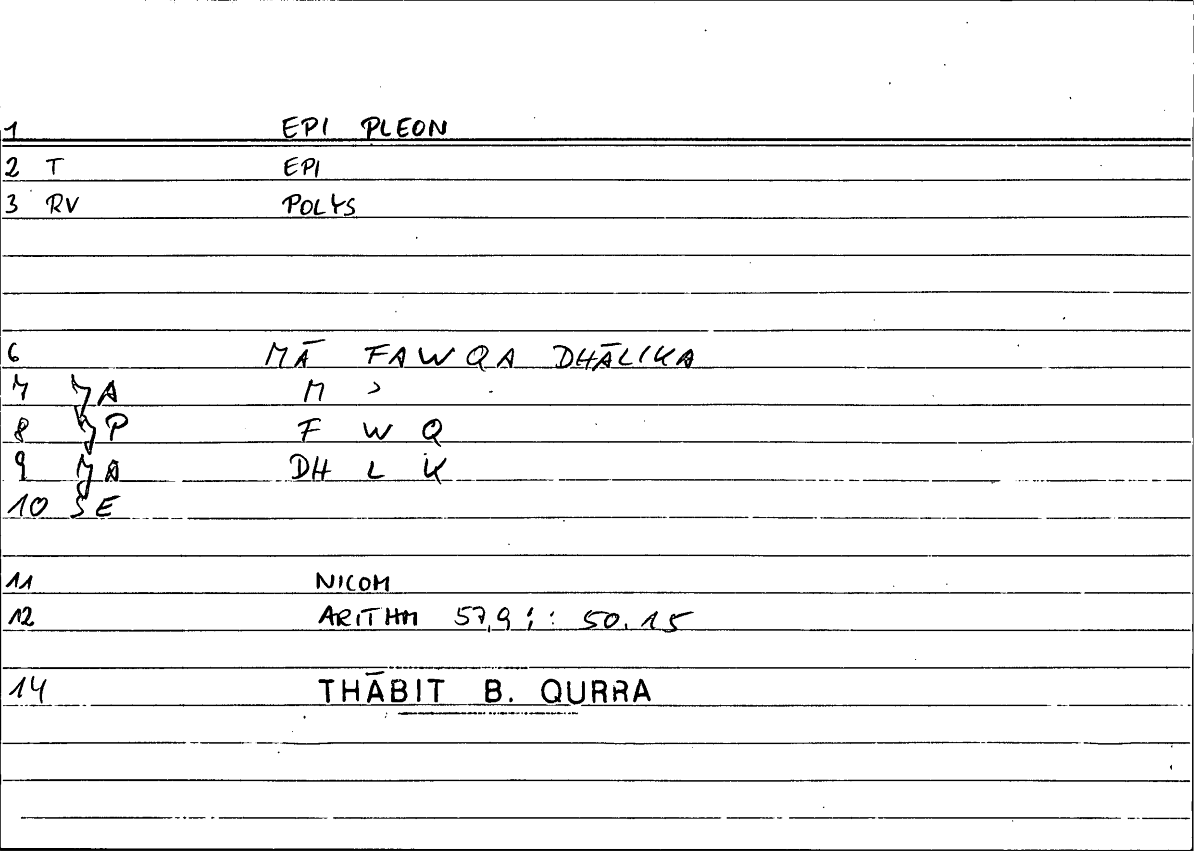 1 EPI PLEON
2 T EPI
3 RV POLYS
6 MĀ FAWQA DHĀLIKA
7 A M ʾ
8 P F W Q
9 A DH L K
10 SE
11 NICOM
12 ARITHM 57,9 ; : 50.15
14 THĀBIT B. QURRA